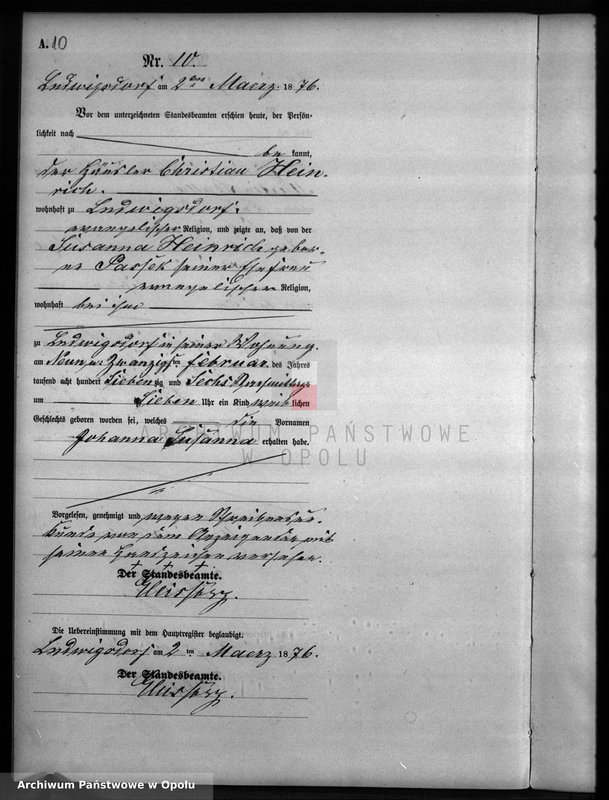 A. 10
Nr. 10.
Ludwigsdorf am 2ten Maerz 1876.
Vor dem unterzeichneten Standesbeamten erschien heute, der Persön-
lichkeit nach
be kannt,
der Häusler Christian Hein-
rich.
wohnhaft zu Ludwigsdorf.
evangelischer Religion, und zeigte an, daß von der
Susanna Heinrich gebor-
ne seiner Ehefrau
evangelischer Religion,
wohnhaft bei ihm
zu Ludwigsdorf in seiner Wohnung
am Neun und Zwanzigsten Februar des Jahres
tausend acht hundert Siebenzig und Sechs Vormittags
um Sieben Uhr ein Kind weiblichen
Geschlechts geboren worden sei, welches die Vornamen
Johanna Susanna erhalten habe.
ARCHIWUM PAŃSTWOWE
W OPOLU
Vorgelesen, genehmigt und wegen Schreibensun-
kunde von dem Anzeigenden mit
seinem Handzeichen versehen.
+ + +
Der Standesbeamte.
Die Uebereinstimmung mit dem Hauptregister beglaubigt.
Ludwigsdorf am 2 ten Maerz 1876.
Der Standesbeamte.
Archiwum Państwowe w Opolu